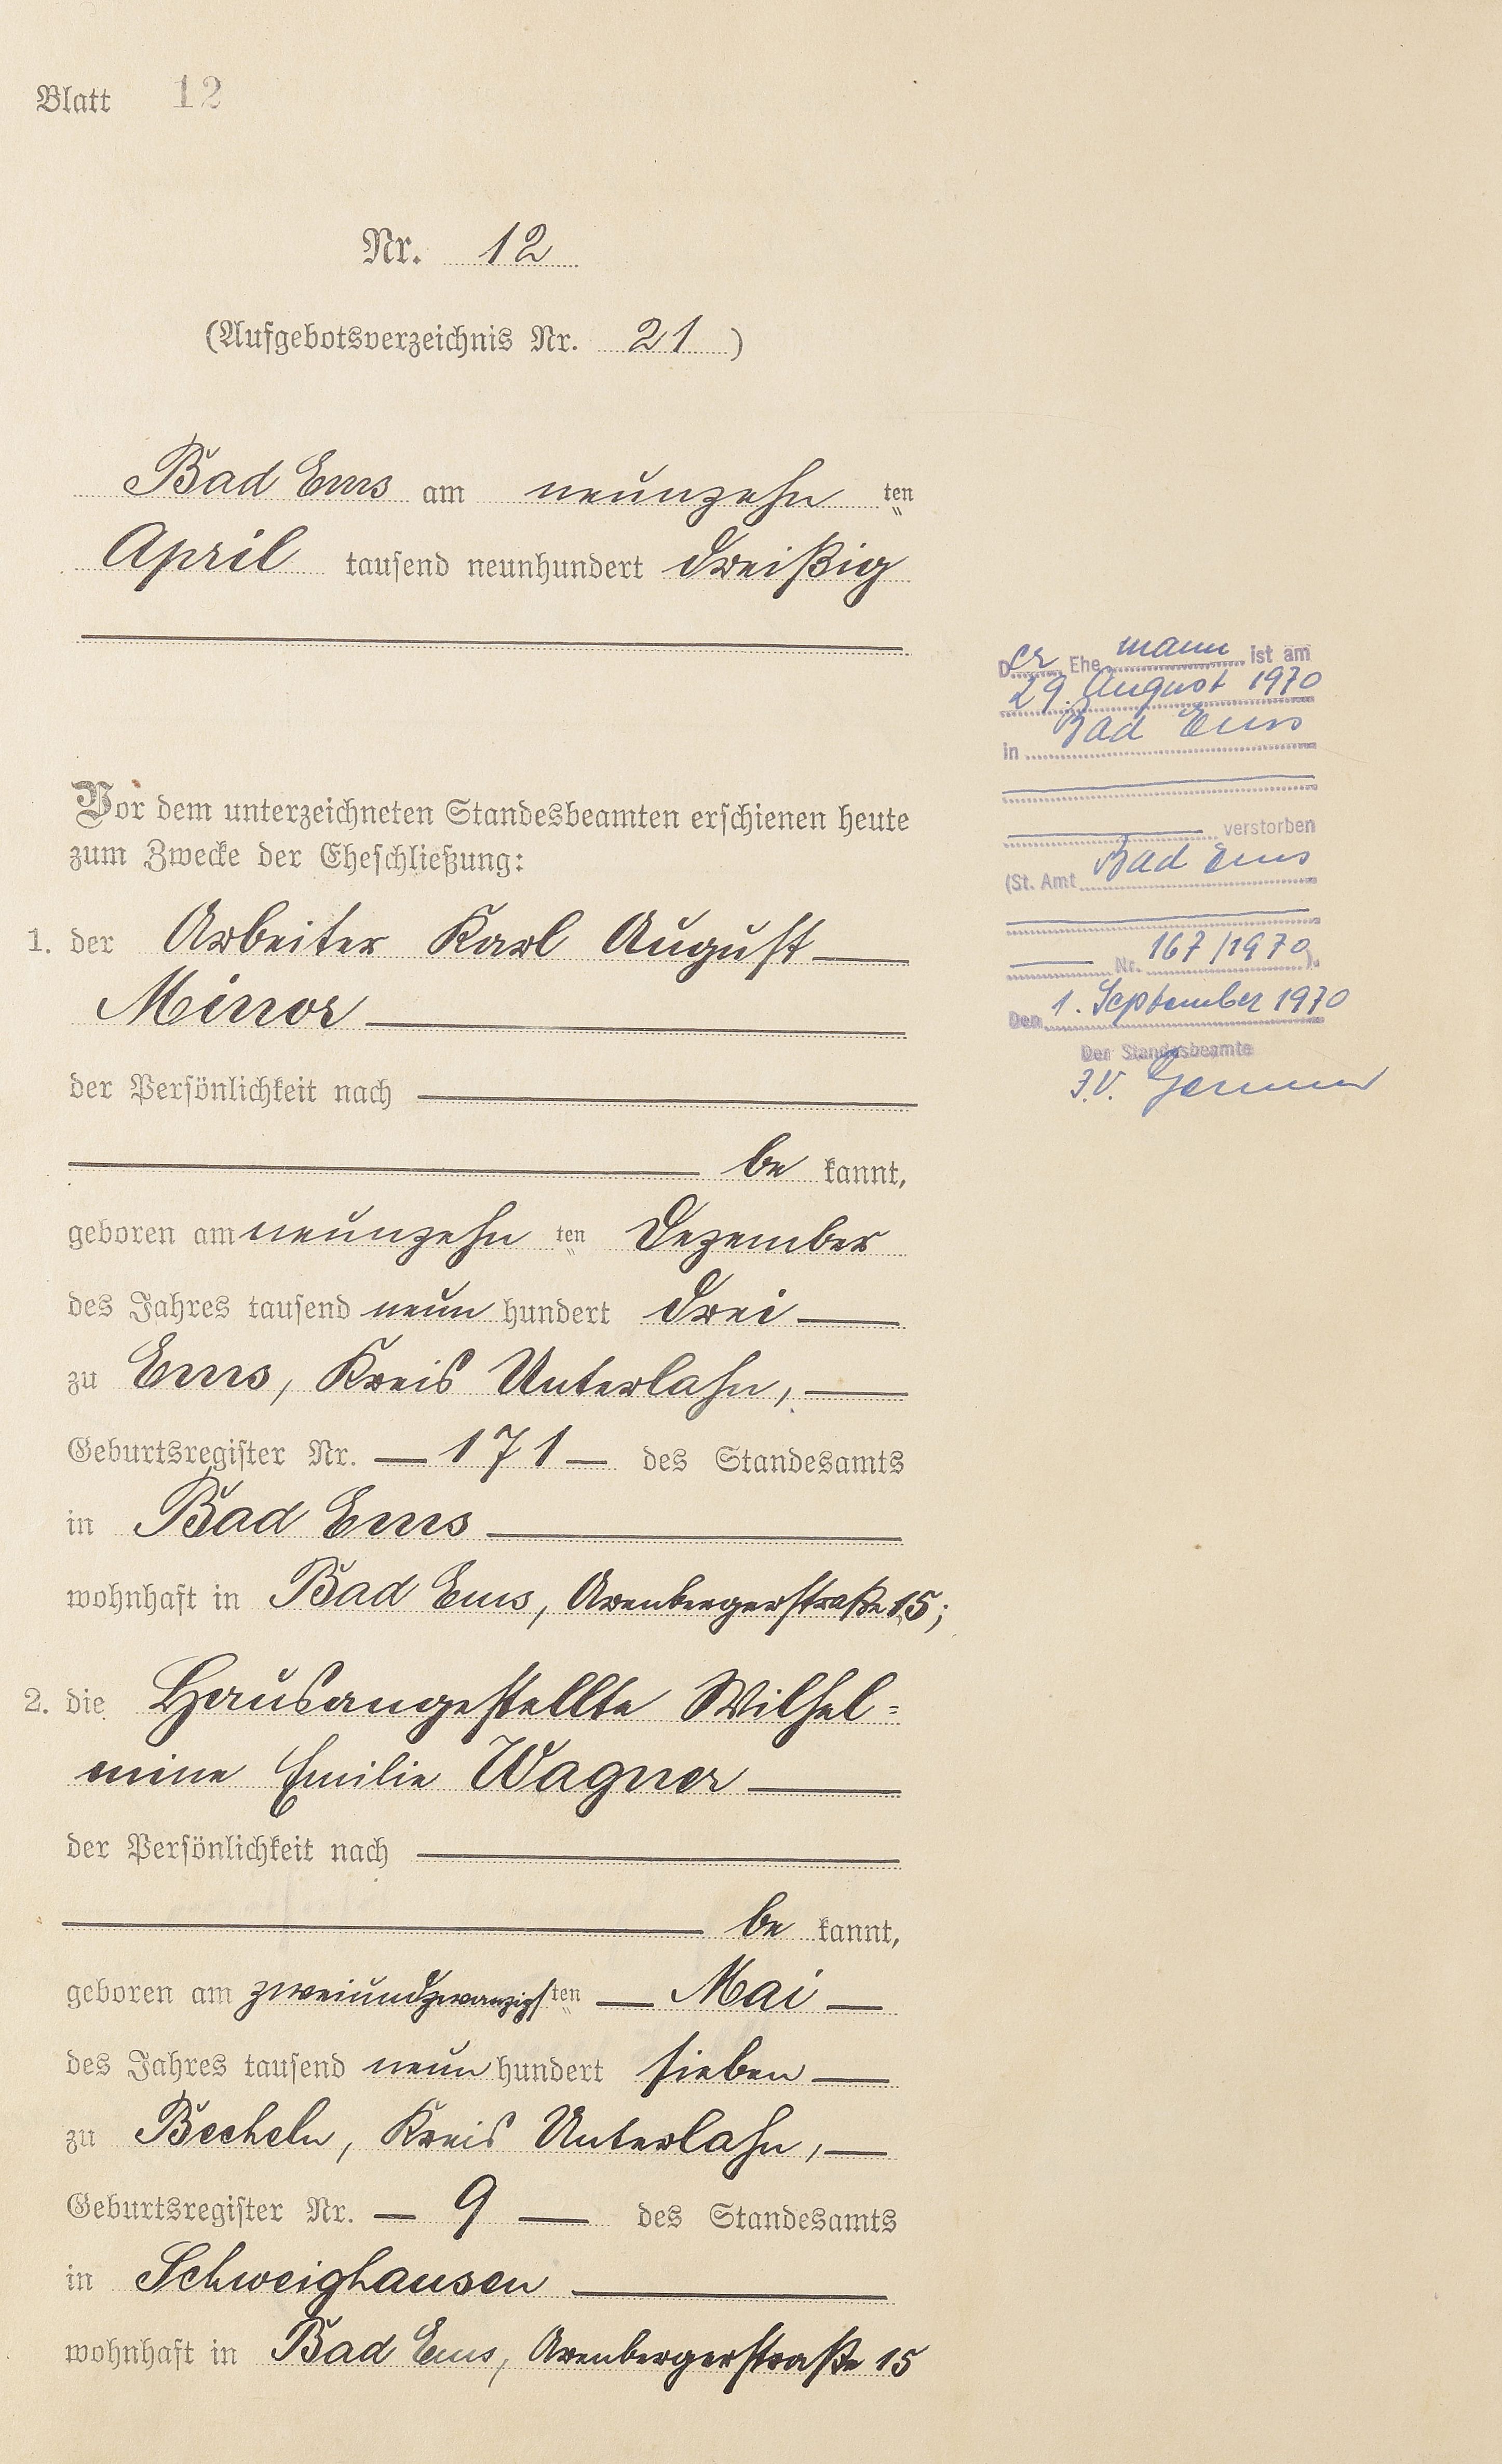 Blatt 12
Nr. 12
(Aufgebotsverzeichnis Nr. 21)
Bad Ems am neunzehn ten
April tausend neunhundert dreißig
Vor dem unterzeichneten Standesbeamten erschienen heute
zum Zwecke der Eheschließung:
1. der Arbeiter Karl August
Minor
der Persönlichkeit nach
be kannt,
geboren am neunzehn ten Dezember
des Jahres tausend neun hundert drei
zu Ems, Kreis Unterlahn,
Geburtsregister Nr. 171 des Standesamts
in Bad Ems
wohnhaft in Bad Ems, Arenbergerstraße 15;
2. die Hausangestellte Wilhel=
mine Emilie Wagner
der Persönlichkeit nach
be kannt,
geboren am zweiundzwanzigsten Mai
des Jahres tausend neun hundert sieben
zu Becheln, Kreis Unterlahn,
Geburtsregister Nr. 9 des Standesamts
in Schweighausen
wohnhaft in Bad Ems, Arenbergerstraße 15
Der Ehemann ist am
29. August 1970
in Bad Ems
verstorben
(St. Amt Bad Ems
Nr. 167/1970).
Den 1. September 1970
Der Standesbeamte
J.V.